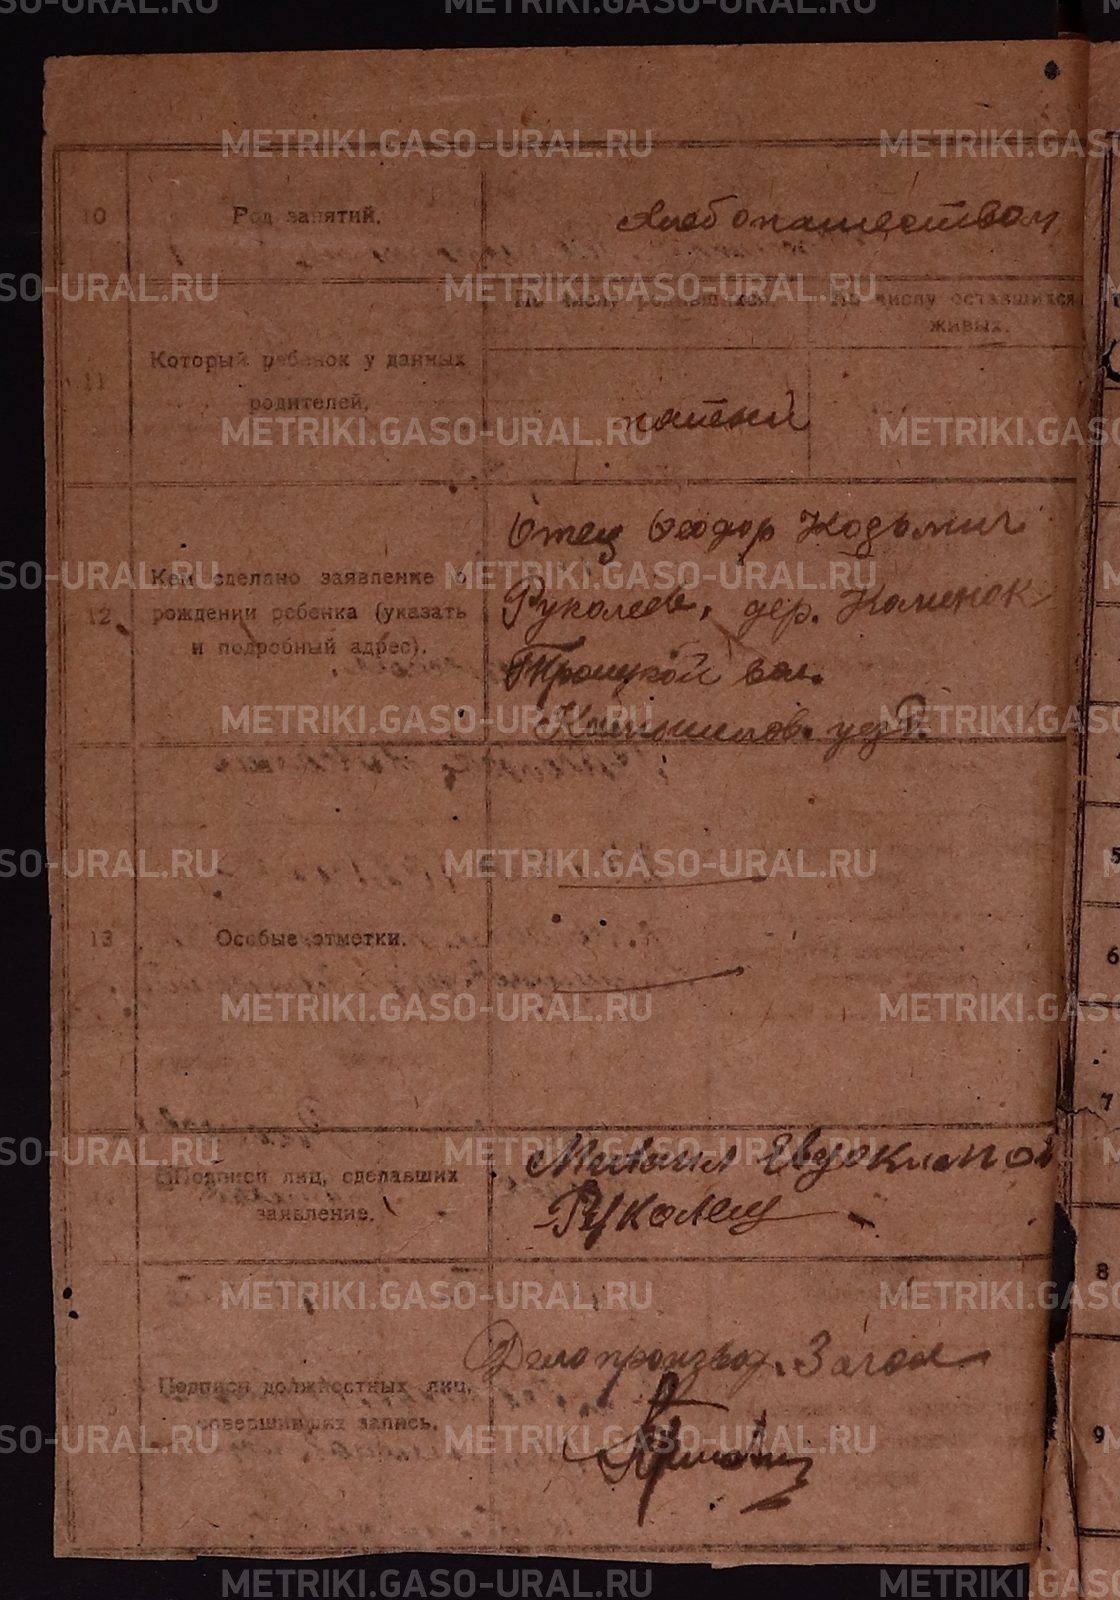 10
Род занятий.
Хлебопашеством
11
Который ребенок у данных
родителей.
По числу родившихся.
По числу оставшихся
живых.
пятый
12
Кем сделано заявление о
рождении ребенка (указать
и подробный адрес).
Отец Феодор Козьмич
Руколеев, дер.
Троицкой вол.
Камышлов. уезд.
13
Особые отметки.
Подписи лиц, сделавших
заявление.
Михаил Евдокимов
Руколеев
Подписи должностных лиц,
совершивших запись.
Делопроизвод.
5
6
7
8
9
METRIKI.GASO-URAL.RU